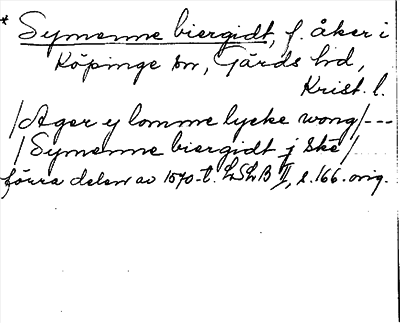 * Symenne biergidt, f. åker i
Köpinge sn, Gärds hd,
Krist. l.
/Ager ej lomme lycke wong/---
/Symenne biergidt j ske/
förra delen av 1570-t. LSLB II, s. 166. orig.